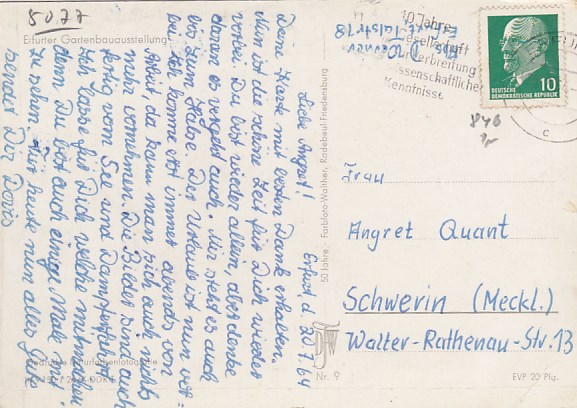 5077
Erfurter Gartenbauausstellung
Erfurt, d. 20.7.64
Liebe Angret!
Deine Karte mit besten Dank erhalten.
Nun ist die schöne Zeit für Dich wieder
vorbei. Du bist wieder allein, aber denke
daran es vergeht auch. Mir geht es auch
bis zum Halse. Der Urlaub ist nun vor-
bei. Ich komme erst immer abends von
Arbeit da kann man sich auch nichts
mehr vornehmen. Die Bilder sind auch
fertig vom See und Dampferfahrt.
Ich lasse für Dich welche mitmachen
denn Du bist auch einige Male mit
zu sehen. Für heute nun alles Gute
sendet Dir Doris
Deutsche Naturfarbenfotografie
50 Jahre - Farbfoto-Walther, Radebeul-Friedensburg
Nr. 9
10 Jahre
Gesellschaft
Verbreitung
wissenschaftlicher
Kenntnisse
DEUTSCHE
DEMOKRATISCHE REPUBLIK
10
Frau
Angret Quant
Schwerin (Meckl.)
Walter-Rathenau-Str. 13
EVP 20 Pfg.